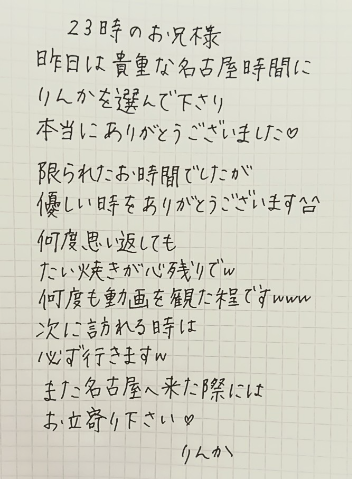 23時のお兄様
昨日は貴重な名古屋時間に
りんかを選んで下さり
本当にありがとうございました♡
限られたお時間でしたが
優しい時をありがとうございます^^
何度思い返しても
たい焼きが心残りでw
何度も動画を観た程ですwww
次に訪れる時は
必ず行きますw
また名古屋へ来た際には
お立寄り下さい♡
りんか